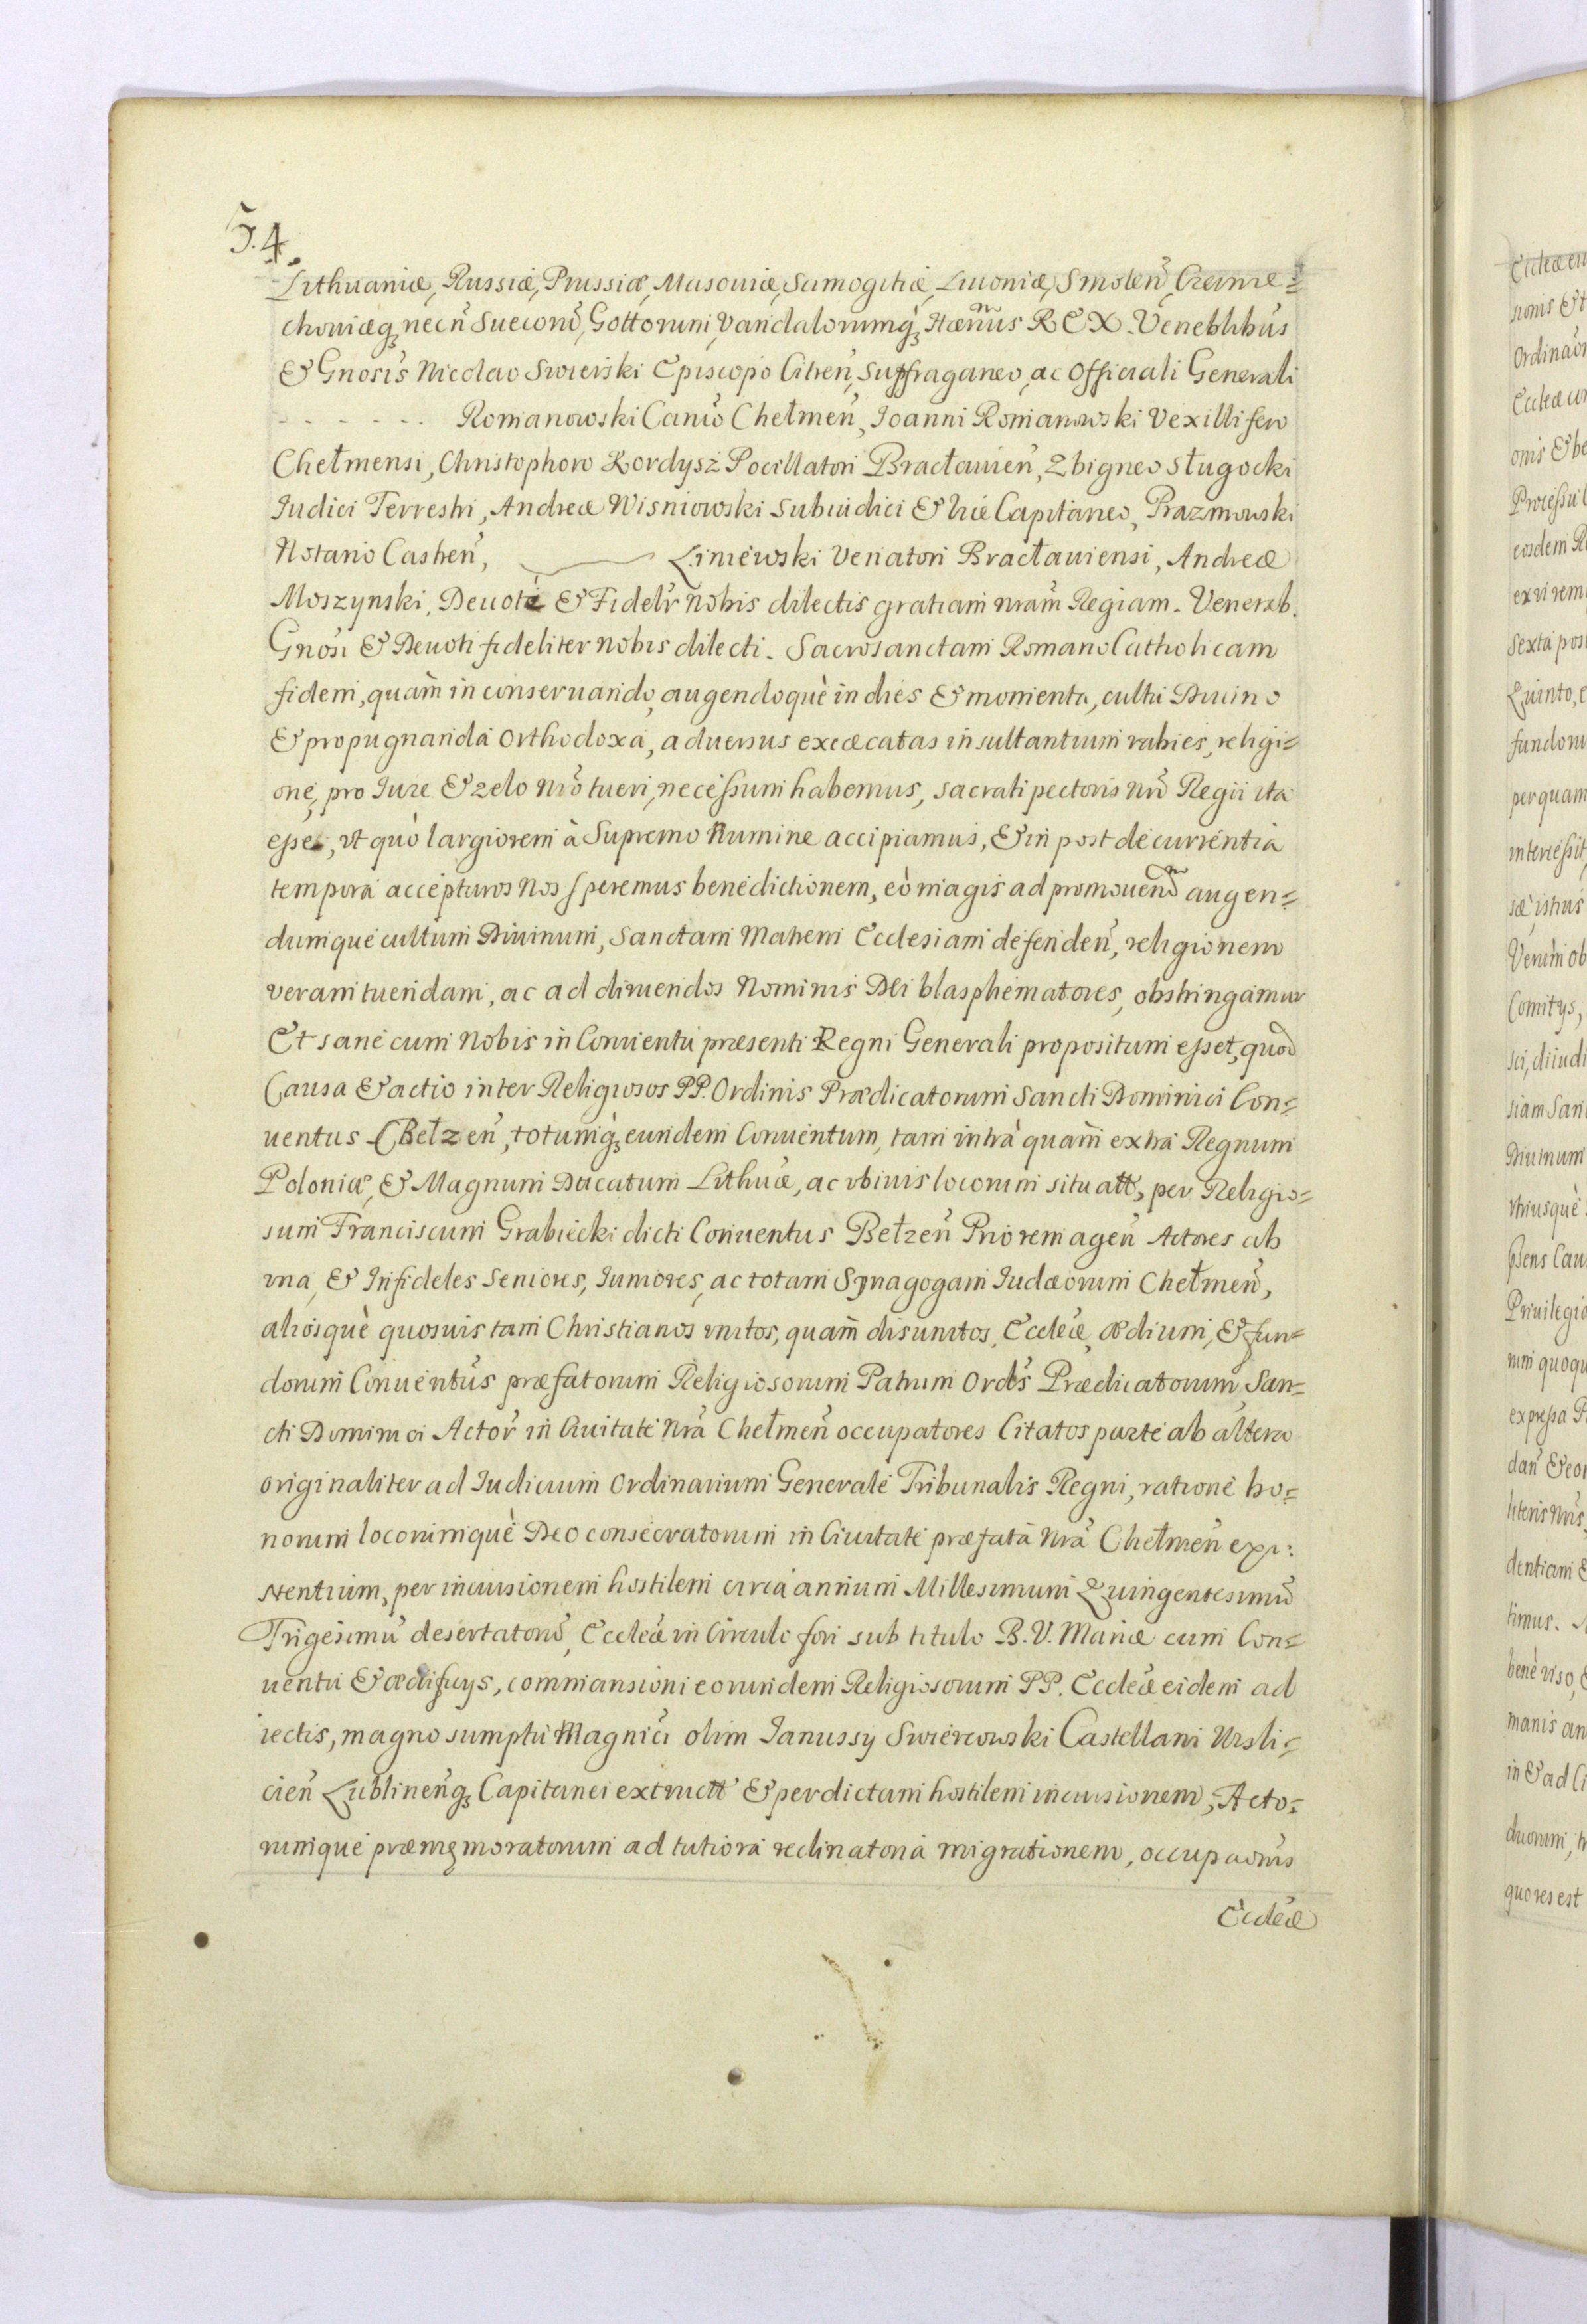 54.
Lithuaniæ, Russiæ, Prussiæ, Masouiæ, Samogitiæ, Liuoniæ, Smoleñ, Czernie=
chouiæq₃ necñ Suecorũ, Gottorum, Vandalorumq₃ Hæñus REX. Veneblibus
& Gnosis Nicolao Swierski Episcopo Citreñ, Suffraganeo, ac Officiali Generali
- - - - - - Romanowski Canico Chełmeñ, Joanni Romanowski Vexillifero
Chełmensi, Christophoro Kordysz Pocillatori Bracłauieñ, Zbigneo Sługocki
Judici Terrestri, Andreæ Wisniowski Subiudici & Vice Capitaneo, Prazmowski
Notario Castreñ, Liniewski Venatori Bracłauiensi, Andreæ
Moszynski, Deuote & Fidelr Nobis dilectis gratiam nram Regiam. Venerab.
Gnosi & Deuoti fideliter Nobis dilecti. Sacrosanctam Romano Catholicam
fidem, quam in conseruando, augendoquè in dies & momenta, cultu Diuino
& propugnanda Orthodoxa, aduersus excæcatas insultantium rabies, religi=
one, pro Jure & zelo nro tueri, necessum habemus, sacrati pectoris nri Regii ita
esse, vt quò largiorem à Supremo Numine accipiamus, & in post decurrentia
tempora accepturos Nos speremus benedictionem, eò magis ad promouend augen=
dumque cultum Diuinum, Sanctam Matrem Ecclesiam defendeñ, religionem
veram tuendam, ac ad diruendos Nominis Dei blasphematores, obstringamur
Et sane cum Nobis in Conuentu præsenti Regni Generali propositum esset, quod
Causa & actio inter Religiosos PP. Ordinis Prædicatorum Sancti Dominici Con=
uentus Bełzeñ, totumq₃ eundem Conuentum, tam intra quam extra Regnum
Poloniæ, & Magnum Ducatum Lithuæ, ac vbiuis locorum situatt, per Religio=
sum Franciscum Grabiecki dicti Conuentus Bełzeñ Priorem ageñ Actores ab
vna, & Infideles Seniores, Iuniores, ac totam Synagogam Judæorum Chełmeñ,
aliosquè quosuis tam Christianos vnitos, quam disunitos, Eccleæ, ædium, & fun=
dorum Conuentus præfatorum Religiosorum Patrum Ordis Prædicatorum San=
cti Dominici Actor in Ciuitate Nra Chełmeñ occupatores Citatos parte ab altera
originaliter ad Judicium Ordinarium Generale Tribunalis Regni, ratione bo=
norum locorumquè Deo consecratorum in Ciuitate præfata Nra Chełmeñ exi:
stentium, per incursionem hostilem circa annum Millesimum Quingentesimũ
Trigesimũ desertatorũ, Eccleæ in Circulo fori sub titulo B.V. Mariæ cum Con=
uentu & ædificys, commansioni eorundem Religiosorum PP. Eccleæ eidem ad
iectis, magno sumptu Magnici olim Janussy Swiercowski Castellani Wisli=
cieñ Lublineñq₃ Capitanei extructt & per dictam hostilem incursionem, Acto=
rumque præmemoratorum ad tutiora reclinatoria migrationem, occupaonis
Eccleæ